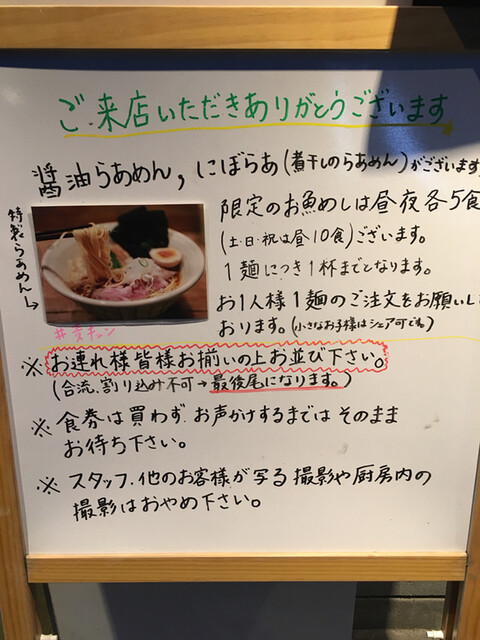 ご来店いただきありがとうございます
醤油らあめん, にぼらあ(煮干しのらあめん)がございます
特製らあめん
限定のお魚めしは昼夜各5食
(土・日・祝は昼10食)ございます。
1麺につき1杯までとなります。
お1人様1麺のご注文をお願いし
おります。(小さなお子様はシェア可です。)
※お連れ様皆様お揃いの上お並び下さい。
(合流、割り込み不可→最後尾になります。)
※食券は買わず、お声かけするまではそのまま
お待ち下さい。
※スタッフ、他のお客様が写る撮影や厨房内の
撮影はおやめ下さい。